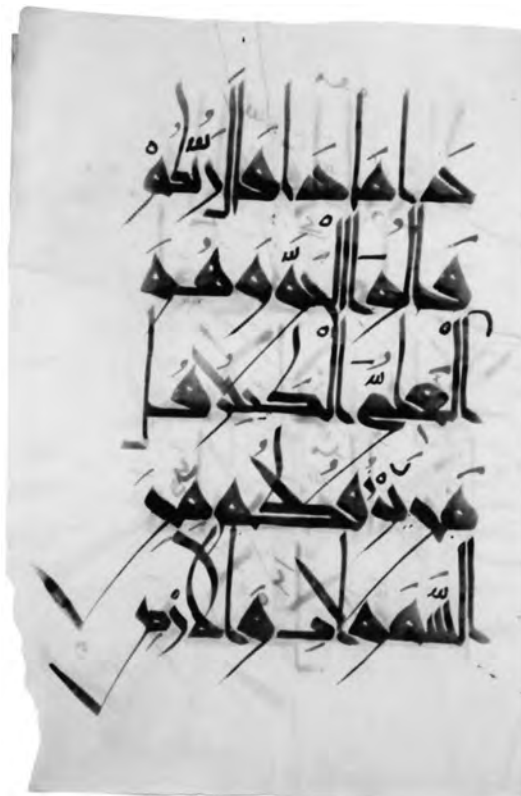 ماذا قَالَ رَبُّكُمْ
قَالُوا الْحَقَّ وَهُوَ
الْعَلِىُّ الْكَبِيرُ قُل
مَن يَرْزُقُكُم مِّنَ
السَّمَوَاتِ وَالْأَرْضِ